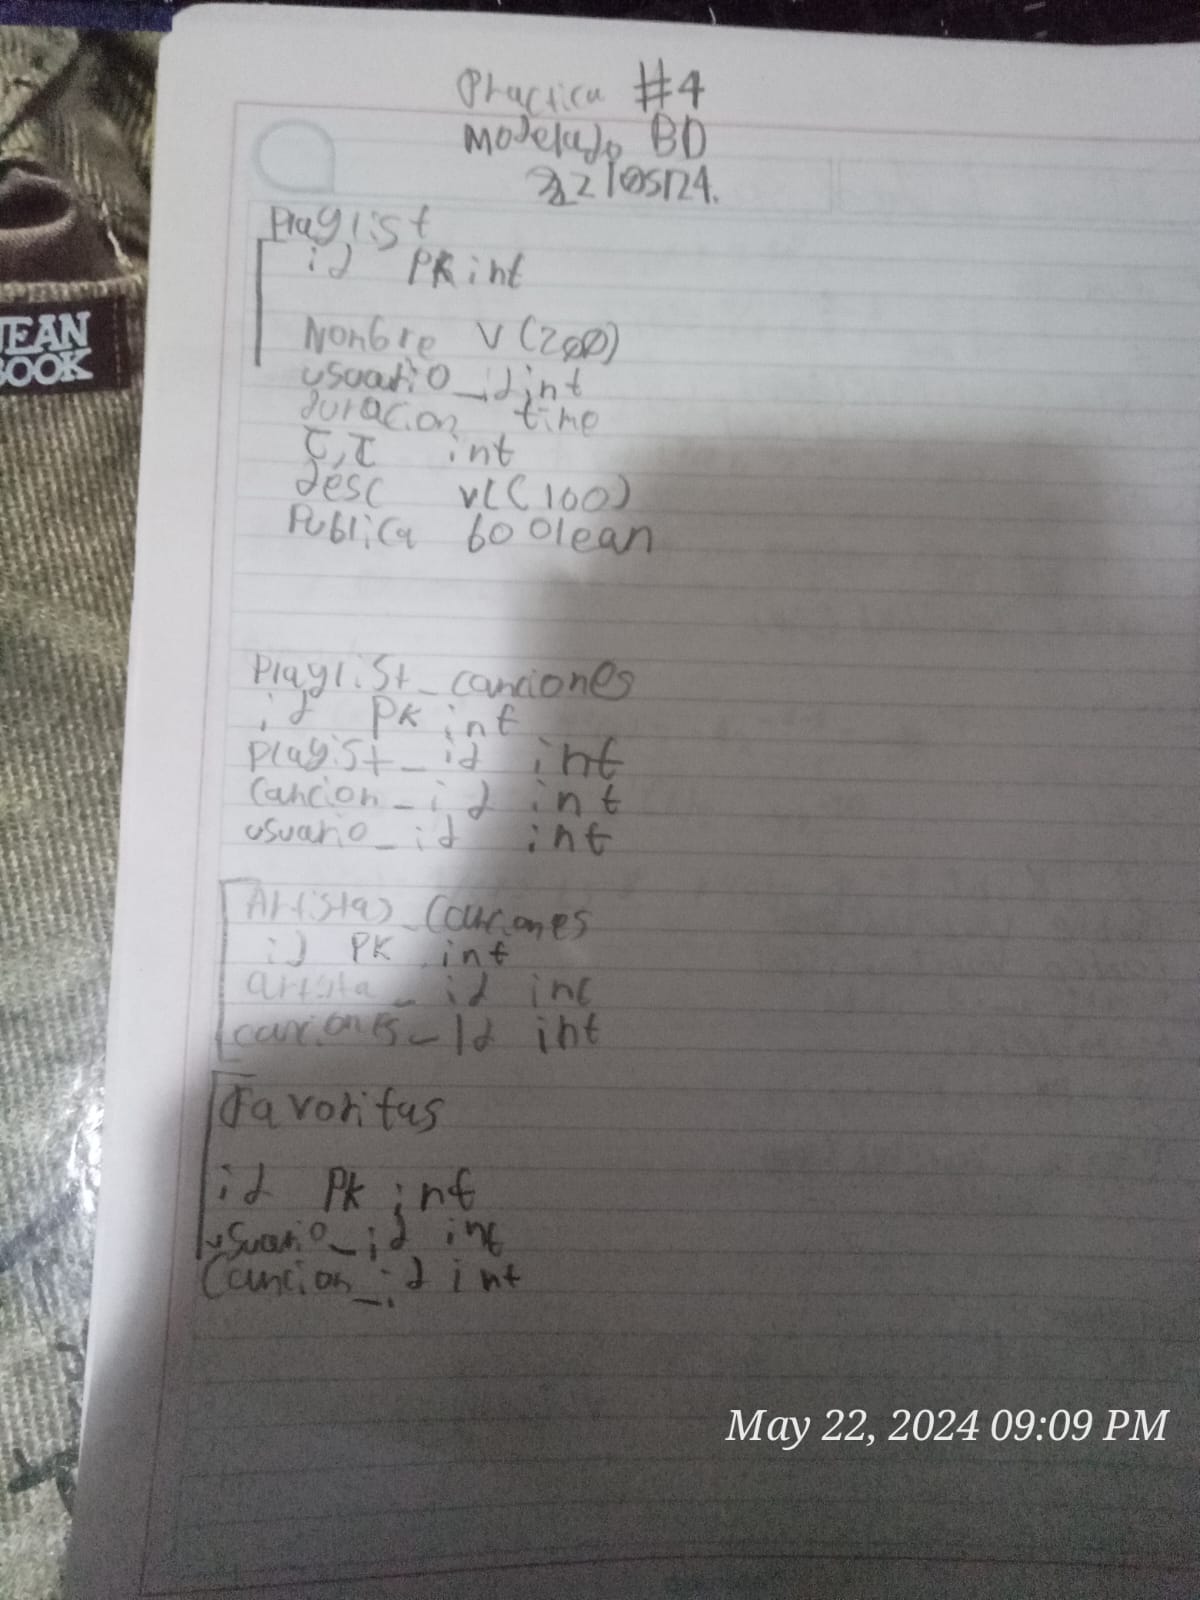 Practica #4
Modelado BD
22/05/24.
Playlist
id PK int
Nombre V(200)
usuario_id int
duracion time
int
desc vc(100)
Publica boolean
Playlist_canciones
id PK int
playist_id int
Cancion_id int
usuario_id int
Artistas_Canciones
id PK int
artista_id int
canciones_Id int
Favoritas
id Pk int
usuario_id int
Cancion_id int
JEAN
BOOK
May 22, 2024 09:09 PM